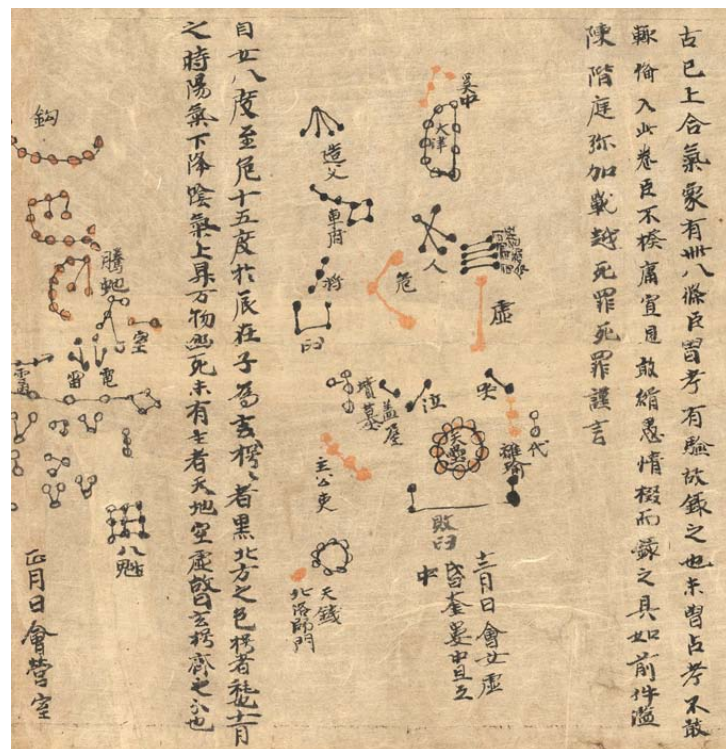 古已上合氣象有卌八條臣曾考有驗故錄之也未曾占考不敢
輒備入此卷臣不揆庸宜見敢緝愚情掇而錄之具如前件濫
陳階庭弥加戰越死罪死罪謹言
奚中
大津
造父
車府
人
危
虛
杵
臼
哭
泣
代
墳墓
蓋屋
天壘
離瑜
敗臼
主公吏
天錢
北落師門
十二月日會女虛
昏奎婁中旦互
中
自女八度至危十五度於辰在子為玄枵枵者黑北方之色枵者耗十一月
之時陽氣下降陰氣上昇万物幽死未有生者天地空虛故曰玄枵齊之分也
鈎
騰虵
室
電
雷
八魁
正月日會營室